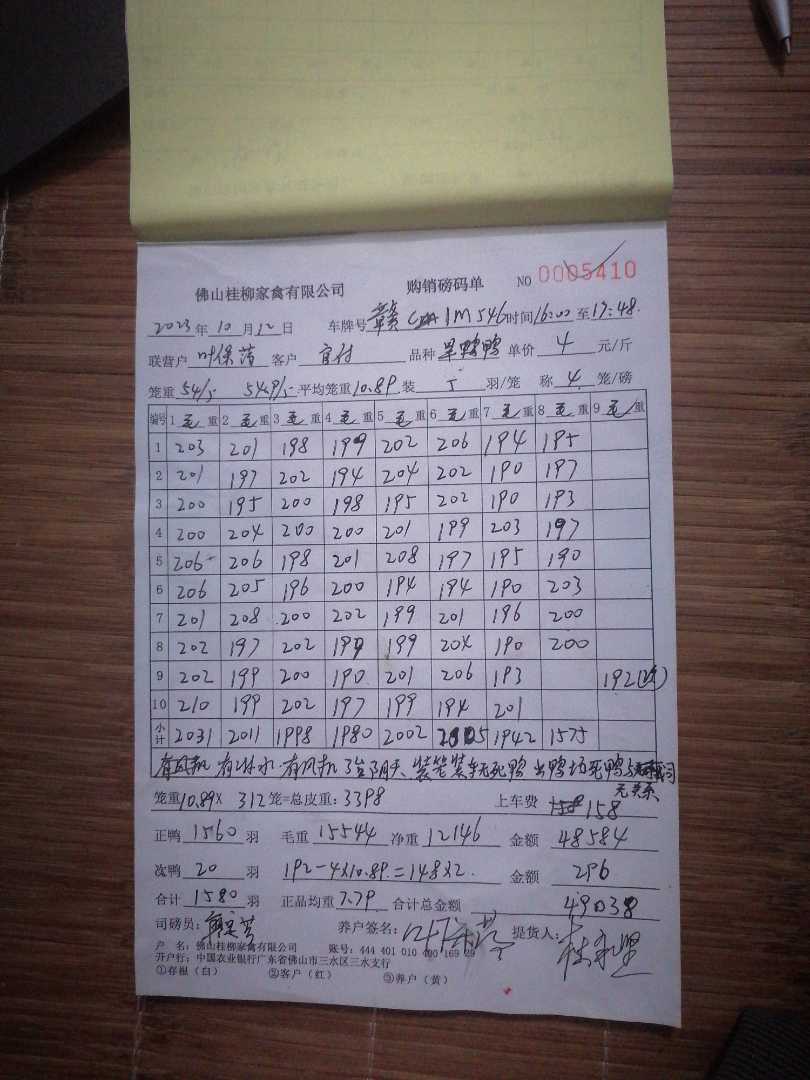 佛山桂柳家禽有限公司 购销磅码单 NO 0005410
2023年10月12日 车牌号 赣C 1M546 时间16:00至17:48
联营户 叶保 客户 付 品种 鸭 单价 4 元/斤
笼重 54/5 54.9/5 平均笼重10.89 装 5 羽/笼 称 4 笼/磅
编号 1 毛 重 2 毛 重 3 毛 重 4 毛 重 5 毛 重 6 毛 重 7 毛 重 8 毛 重 9 毛 重
1 203 201 198 199 202 206 194 195
2 201 197 202 194 204 202 190 197
3 200 195 200 198 195 202 190 193
4 200 204 200 200 201 199 203 197
5 206 206 198 201 208 197 195 190
6 206 205 196 200 194 194 190 203
7 201 208 200 202 199 201 196 200
8 202 197 202 199 199 204 190 200
9 202 199 200 190 201 206 193 192(次)
10 210 199 202 197 199 194 201
小计 2031 2011 1998 1980 2002 2005 1942 1575
有风机 有淋水 有风机 3台 阴天 装笼装车无死鸭 出鸭场死鸭与 司
无关系
笼重10.89× 312笼=总皮重:3398 上车费 158
正鸭 1560 羽 毛重 15544 净重 12146 金额 48584
次鸭 20 羽 192-4×10.89=148×2 金额 296
合计 1580 羽 正品均重 7.79 合计总金额 49038
司磅员: 养户签名: 提货人:
户 名:佛山桂柳家禽有限公司 账号:444 401 010 400 169 29
开户行:中国农业银行广东省佛山市三水区三水支行
①存根(白) ②客户(红) ③养户(黄)